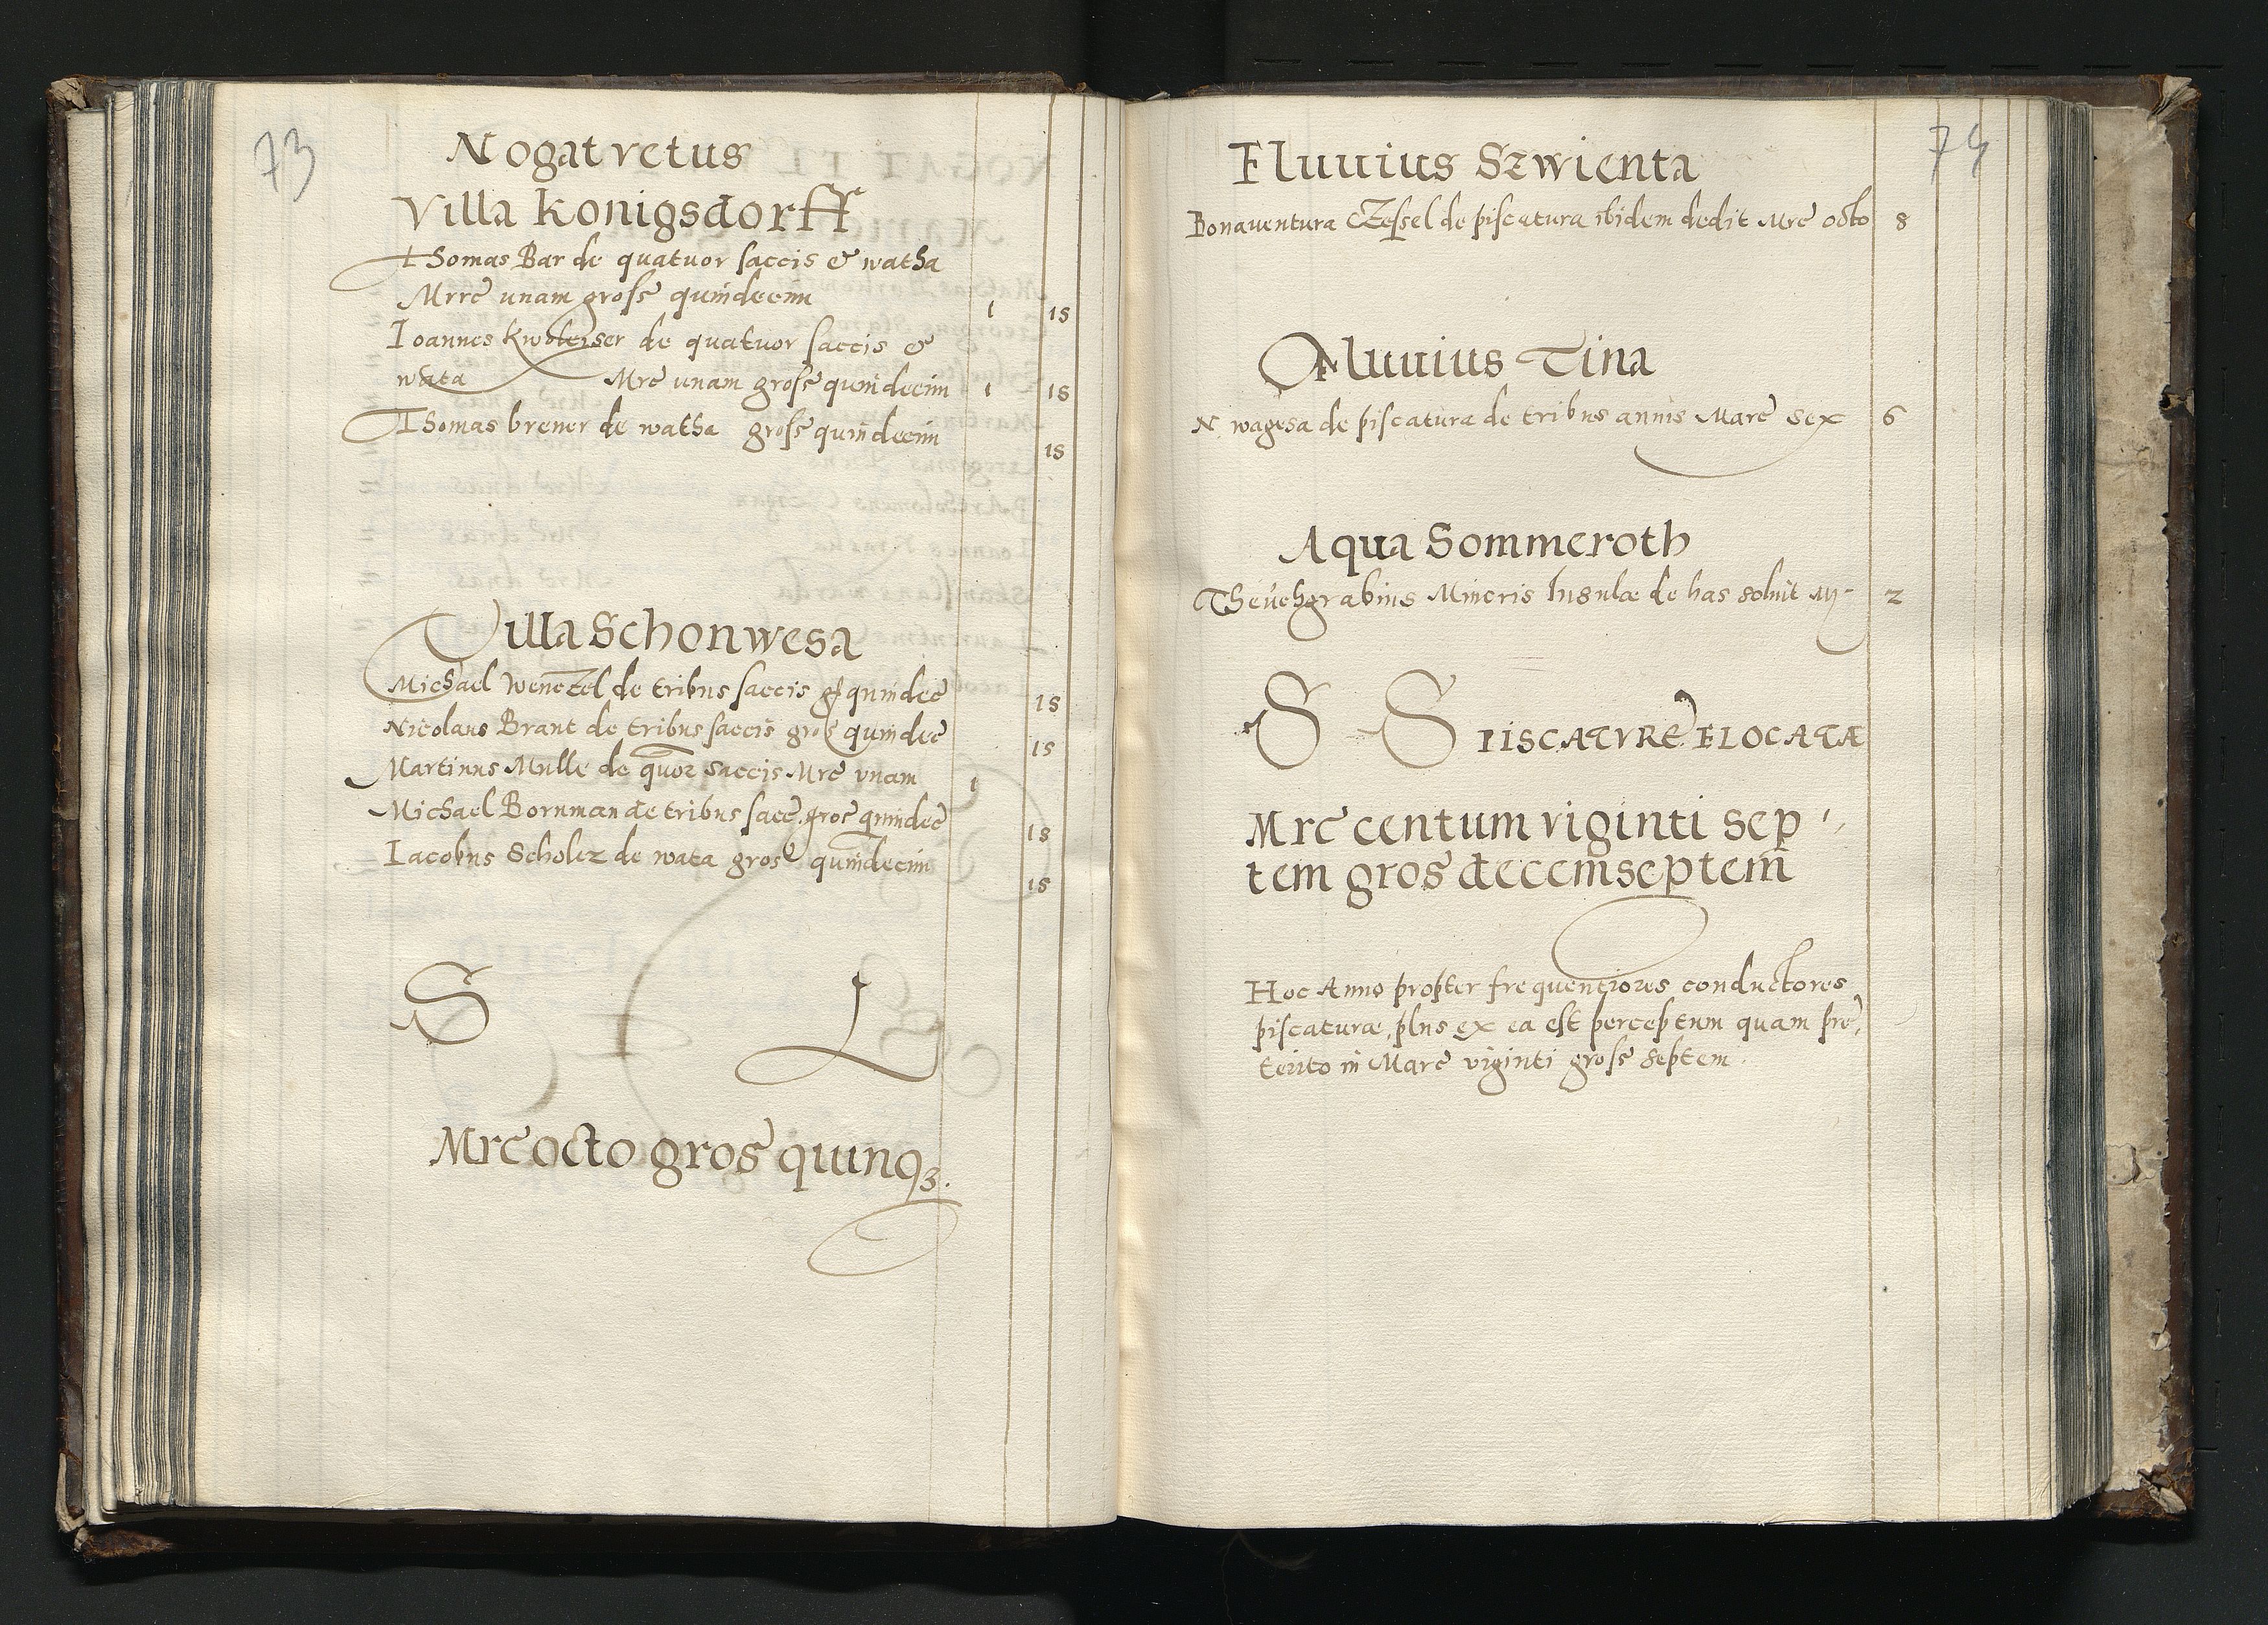 73
Nogat vetus
Villa Konigsdorff
Thomas Bar de quatuor saccis & watha
Mrrc unam gross quindecim 1 15
Ioannes Kwoteiser de quatuor saccis &
wata Mrc unam gross quindecim 1 15
Thomas brener de watha gross quindecim 15
Villa Schonwesa
Michael Wenczel de tribus saccis gs quindec 15
Nicolaus Brant de tribus saccis gros quindec 15
Martinus Mulle de quor saccis Mrc unam 1
Michael Bornman de tribus sacc. gros quindec 15
Iacobus Scholcz de wata gros quindecim 15
S L
Mrc octo gros quinqз.
74
Fluuius Szwienta
Bonauentura Czessel de piscatura ibidem dedit Mrc octo 8
Fluuius Tina
N. wagesa de piscatura de tribus annis Marc sex 6
Aqua Sommeroth
Minoris Insulæ de has soluit 2
S S PISCATVRE ELOCATÆ
Mrc centum viginti sep
tem gros decemseptem
Hoc Anno propter frequentiores conductores
piscaturæ, plus ex ea est perceptum quam pre,
terito in Marc viginti gross septem.